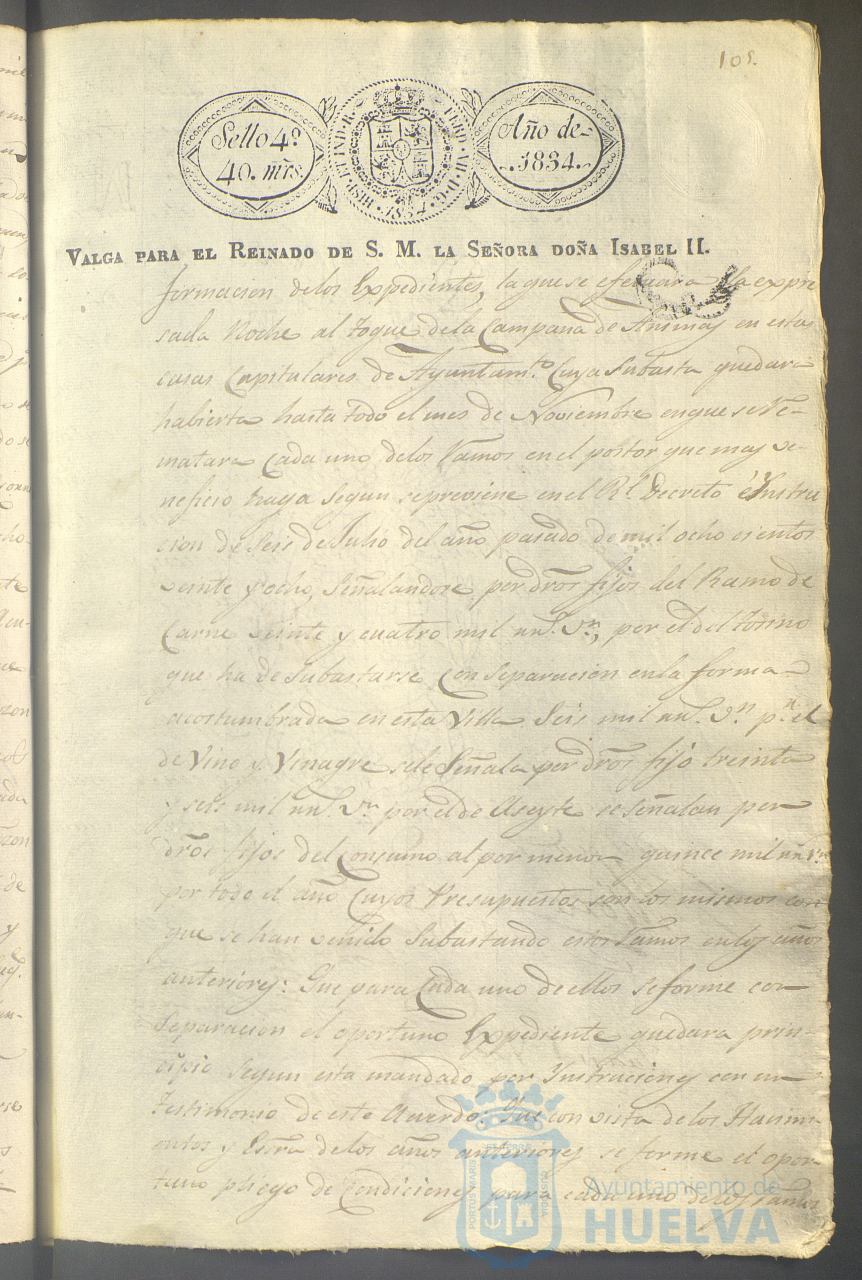 105.
Sello 4º
40. mrs.
HISP. ET IND. R.
FERD. VII. D. G.
1834
Año de
1834.
VALGA PARA EL REINADO DE S. M. LA SEÑORA DOÑA ISABEL II.
formacion delos Expedientes, la que se efectuara la expre
sada Noche al toque dela Campana de Animas en estas
casas Capitulares de Ayuntamto. Cuya Subasta quedara
habierta hasta todo el mes de Noviembre en que se Re-
matara Cada uno delos Ramos en el postor que mas ve-
neficio haga segun se previene en el Rl. Decreto é Ynstru
cion de Seis de Julio del año pasado de mil ocho cientos
veinte y ocho, Señalandose por dros fijos del Ramo de
Carne veinte y cuatro mil rrs. vn, por el del tosino
que ha de subastarse con separacion en la forma
acostumbrada en esta Villa Seis mil rrs. vn pr. el
de Vino y Vinagre sele Señala por dros fijo treinta
y seis mil rrs. vn por el de Aseyte se señalan por
dros fijos del Consumo al por menor quince mil rrs vn
por todo el año Cuyos Presupuestos son los mismos con
que se han venido Subastando estos Ramos en los años
anteriores: Que para Cada uno de ellos se forme con
separacion el oportuno Expediente quedara prin-
cipio segun esta mandado por Ynstruciones con un
testimonio de este Acuerdo: Que con vista de los Hacimi-
entos y de los años anteriores se forme el opor-
tuno pliego de Condiciones para cada uno de los Ramos
PORTUS MARIS
ET TERRÆ
CUSTODIA
Ayuntamiento de
HUELVA